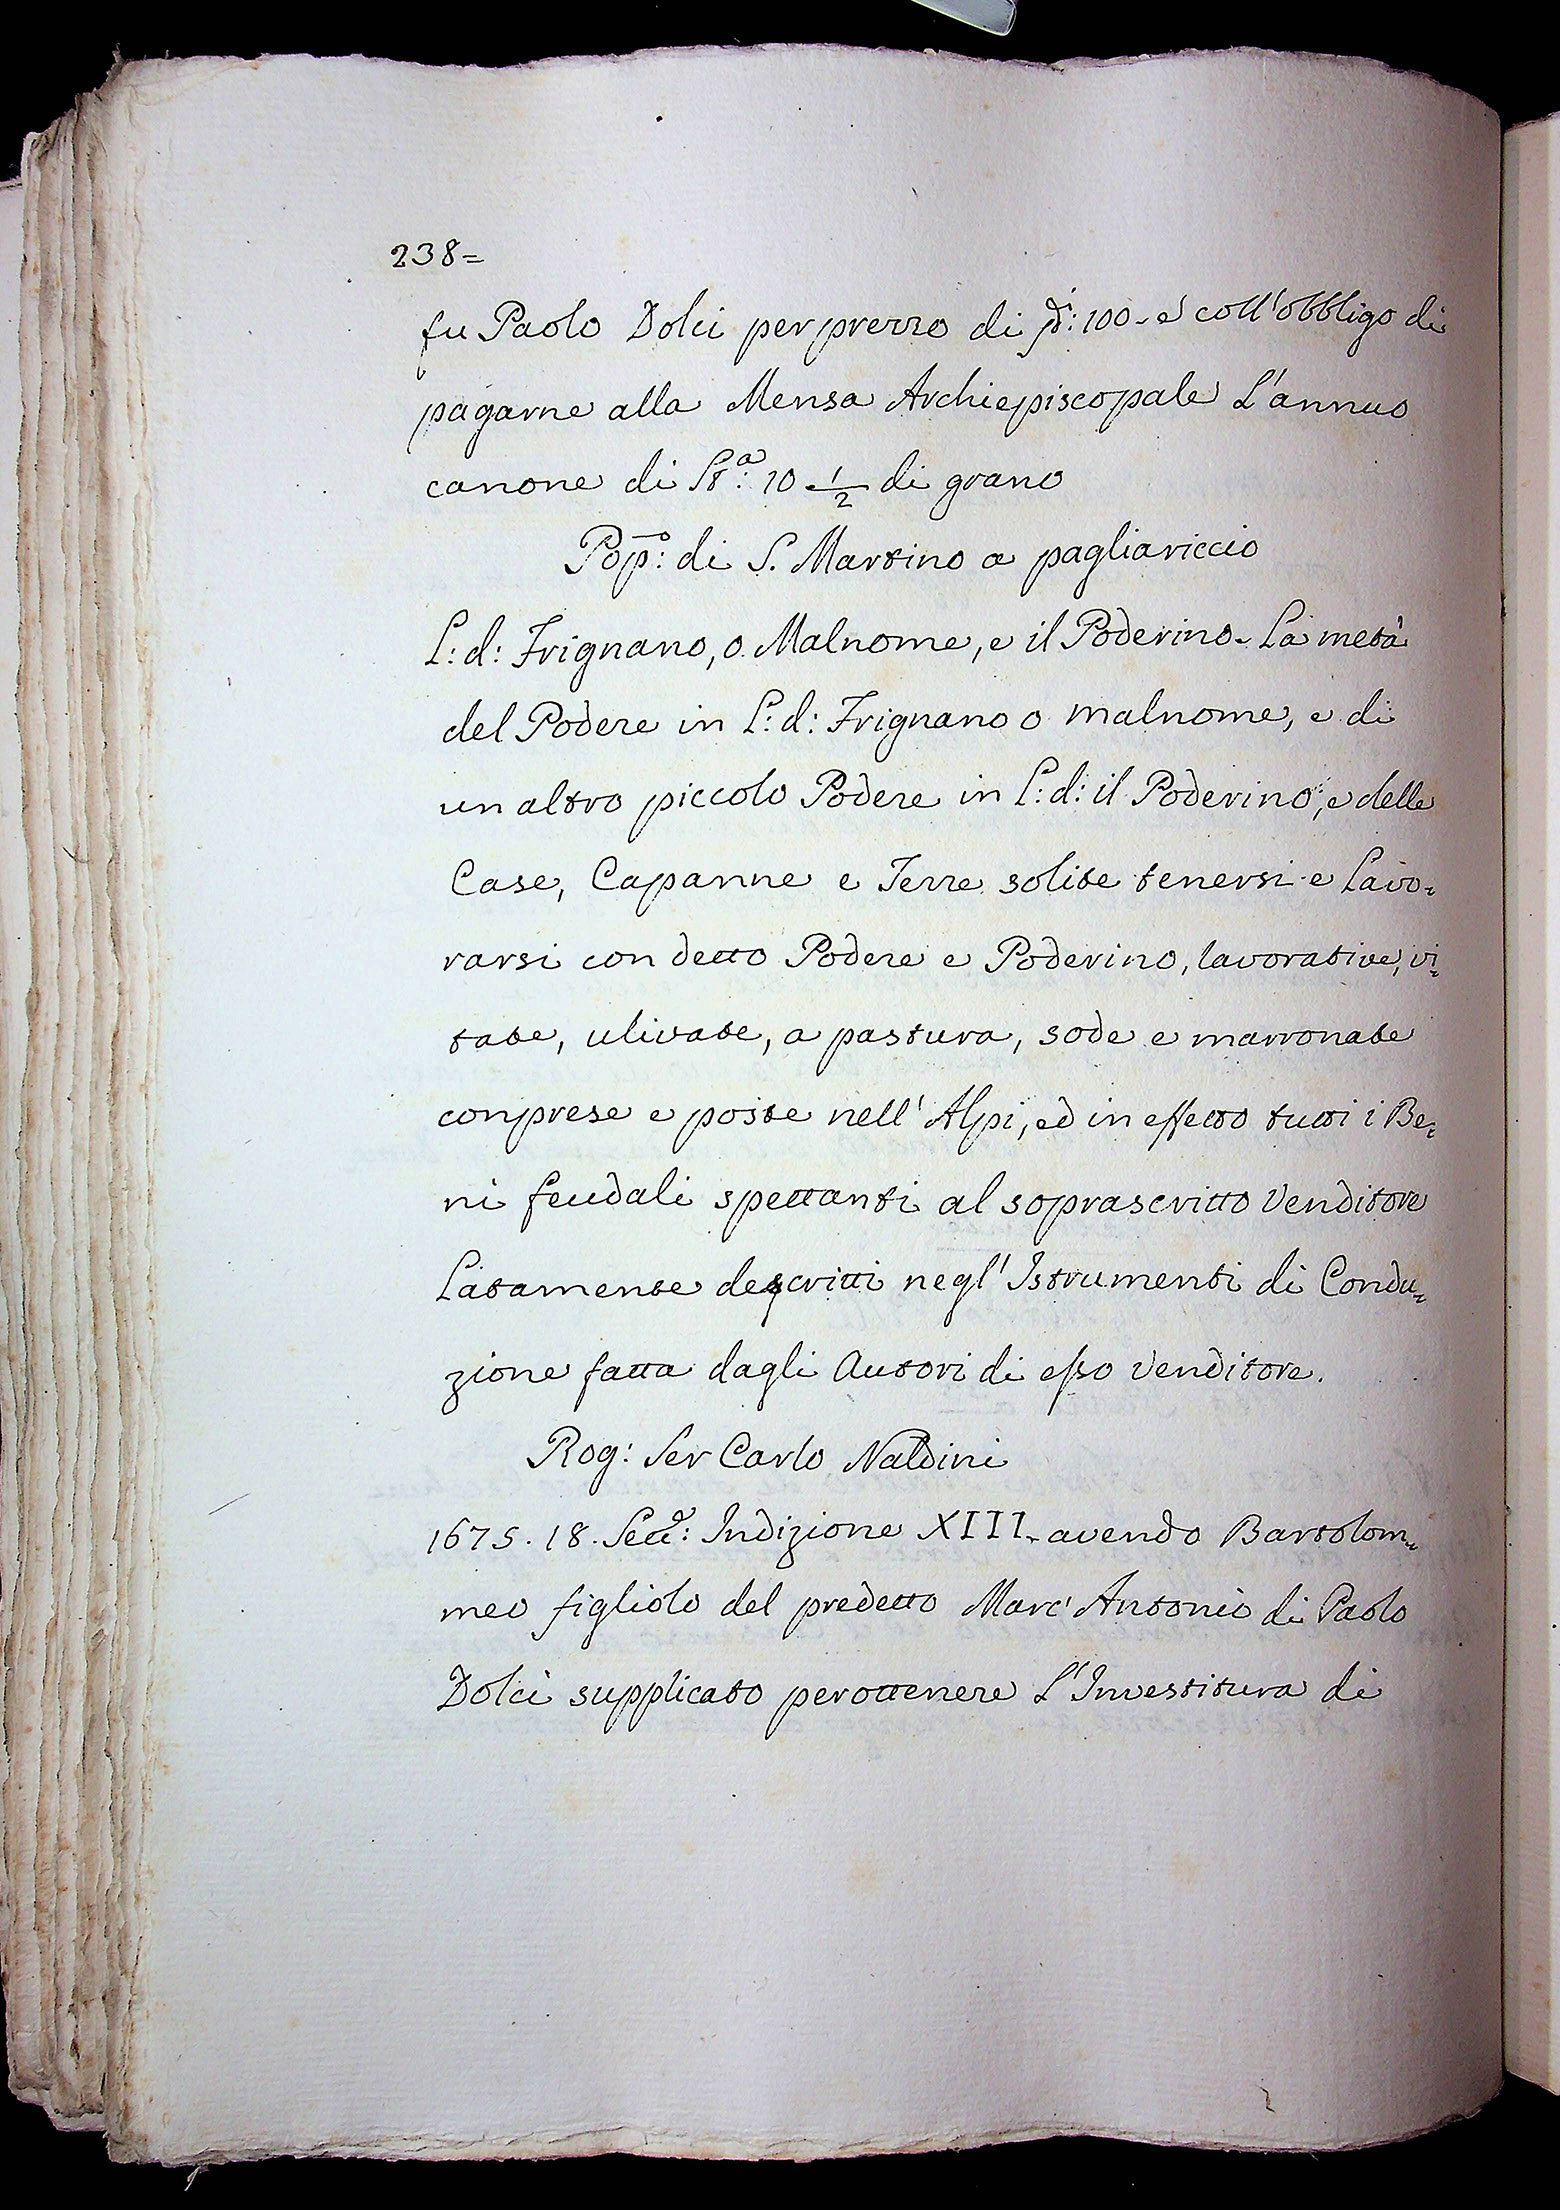 238=
fu Paolo Dolci per prezzo di 100- e coll'obbligo di
pagarne alla Mensa Archiepiscopale L'annuo
canone di St.ª 10 1/2 di grano
Pop.º: di S. Martino a pagliariccio
L: d: Frignano, o Malnome, e il Poderino- La metà
del Podere in L: d: Frignano o malnome, e di
un altro piccolo Podere in L: d: il Poderino, e delle
Case, Capanne e Terre solite tenersi e Lavo=
rarsi con detto Podere e Poderino, lavorative, vi=
tate, ulivate, a pastura, sode e marronate
conprese e poste nell'Alpi, ed in effetto tutti i Be=
ni feudali spettanti al soprascritto Venditore
Latamente descritti negl'Istrumenti di Condu=
zione fatta dagli Autori di esso Venditore.
Rog: Ser Carlo Naldini
1675. 18. Indizione XIII- avendo Bartolom=
meo figliolo del predetto Marc'Antonio di Paolo
Dolci supplicato per ottenere L'Investitura di